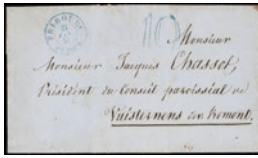 FRIBOURG
10
Monsieur
Monsieur Jacques Chassot,
Président du Conseil paroissial de
Vuisternens dev. Romont.